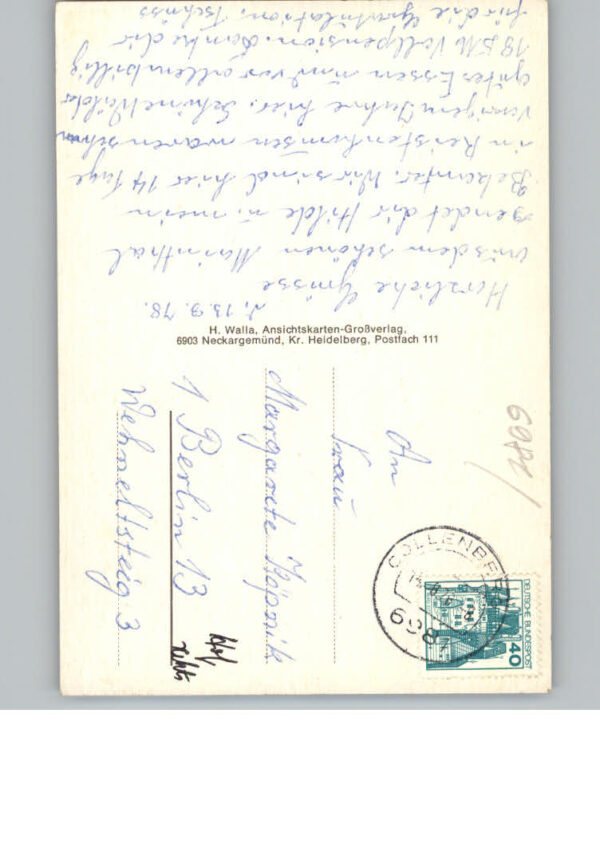 d. 13.9.78.
Herzliche Grüsse
aus dem schönen Maintal
sendet dir Hilde u. mein
Bekanter. Wir sind hier 14 Tage
in Reistenhausen waren schon
vorigem Jahre hier. Schöne Wälder
gutes Essen und vor allem billig
18 DM Vollpension. Danke dir
für die Gratulation. Tschüss
H. Walla, Ansichtskarten-Großverlag,
6903 Neckargemünd, Kr. Heidelberg, Postfach 111
An
Frau
Margarete Köpnik
1 Berlin 13
Wehneltsteig 3
Hof,
COLLENBERG
6987
DEUTSCHE BUNDESPOST
40
6982